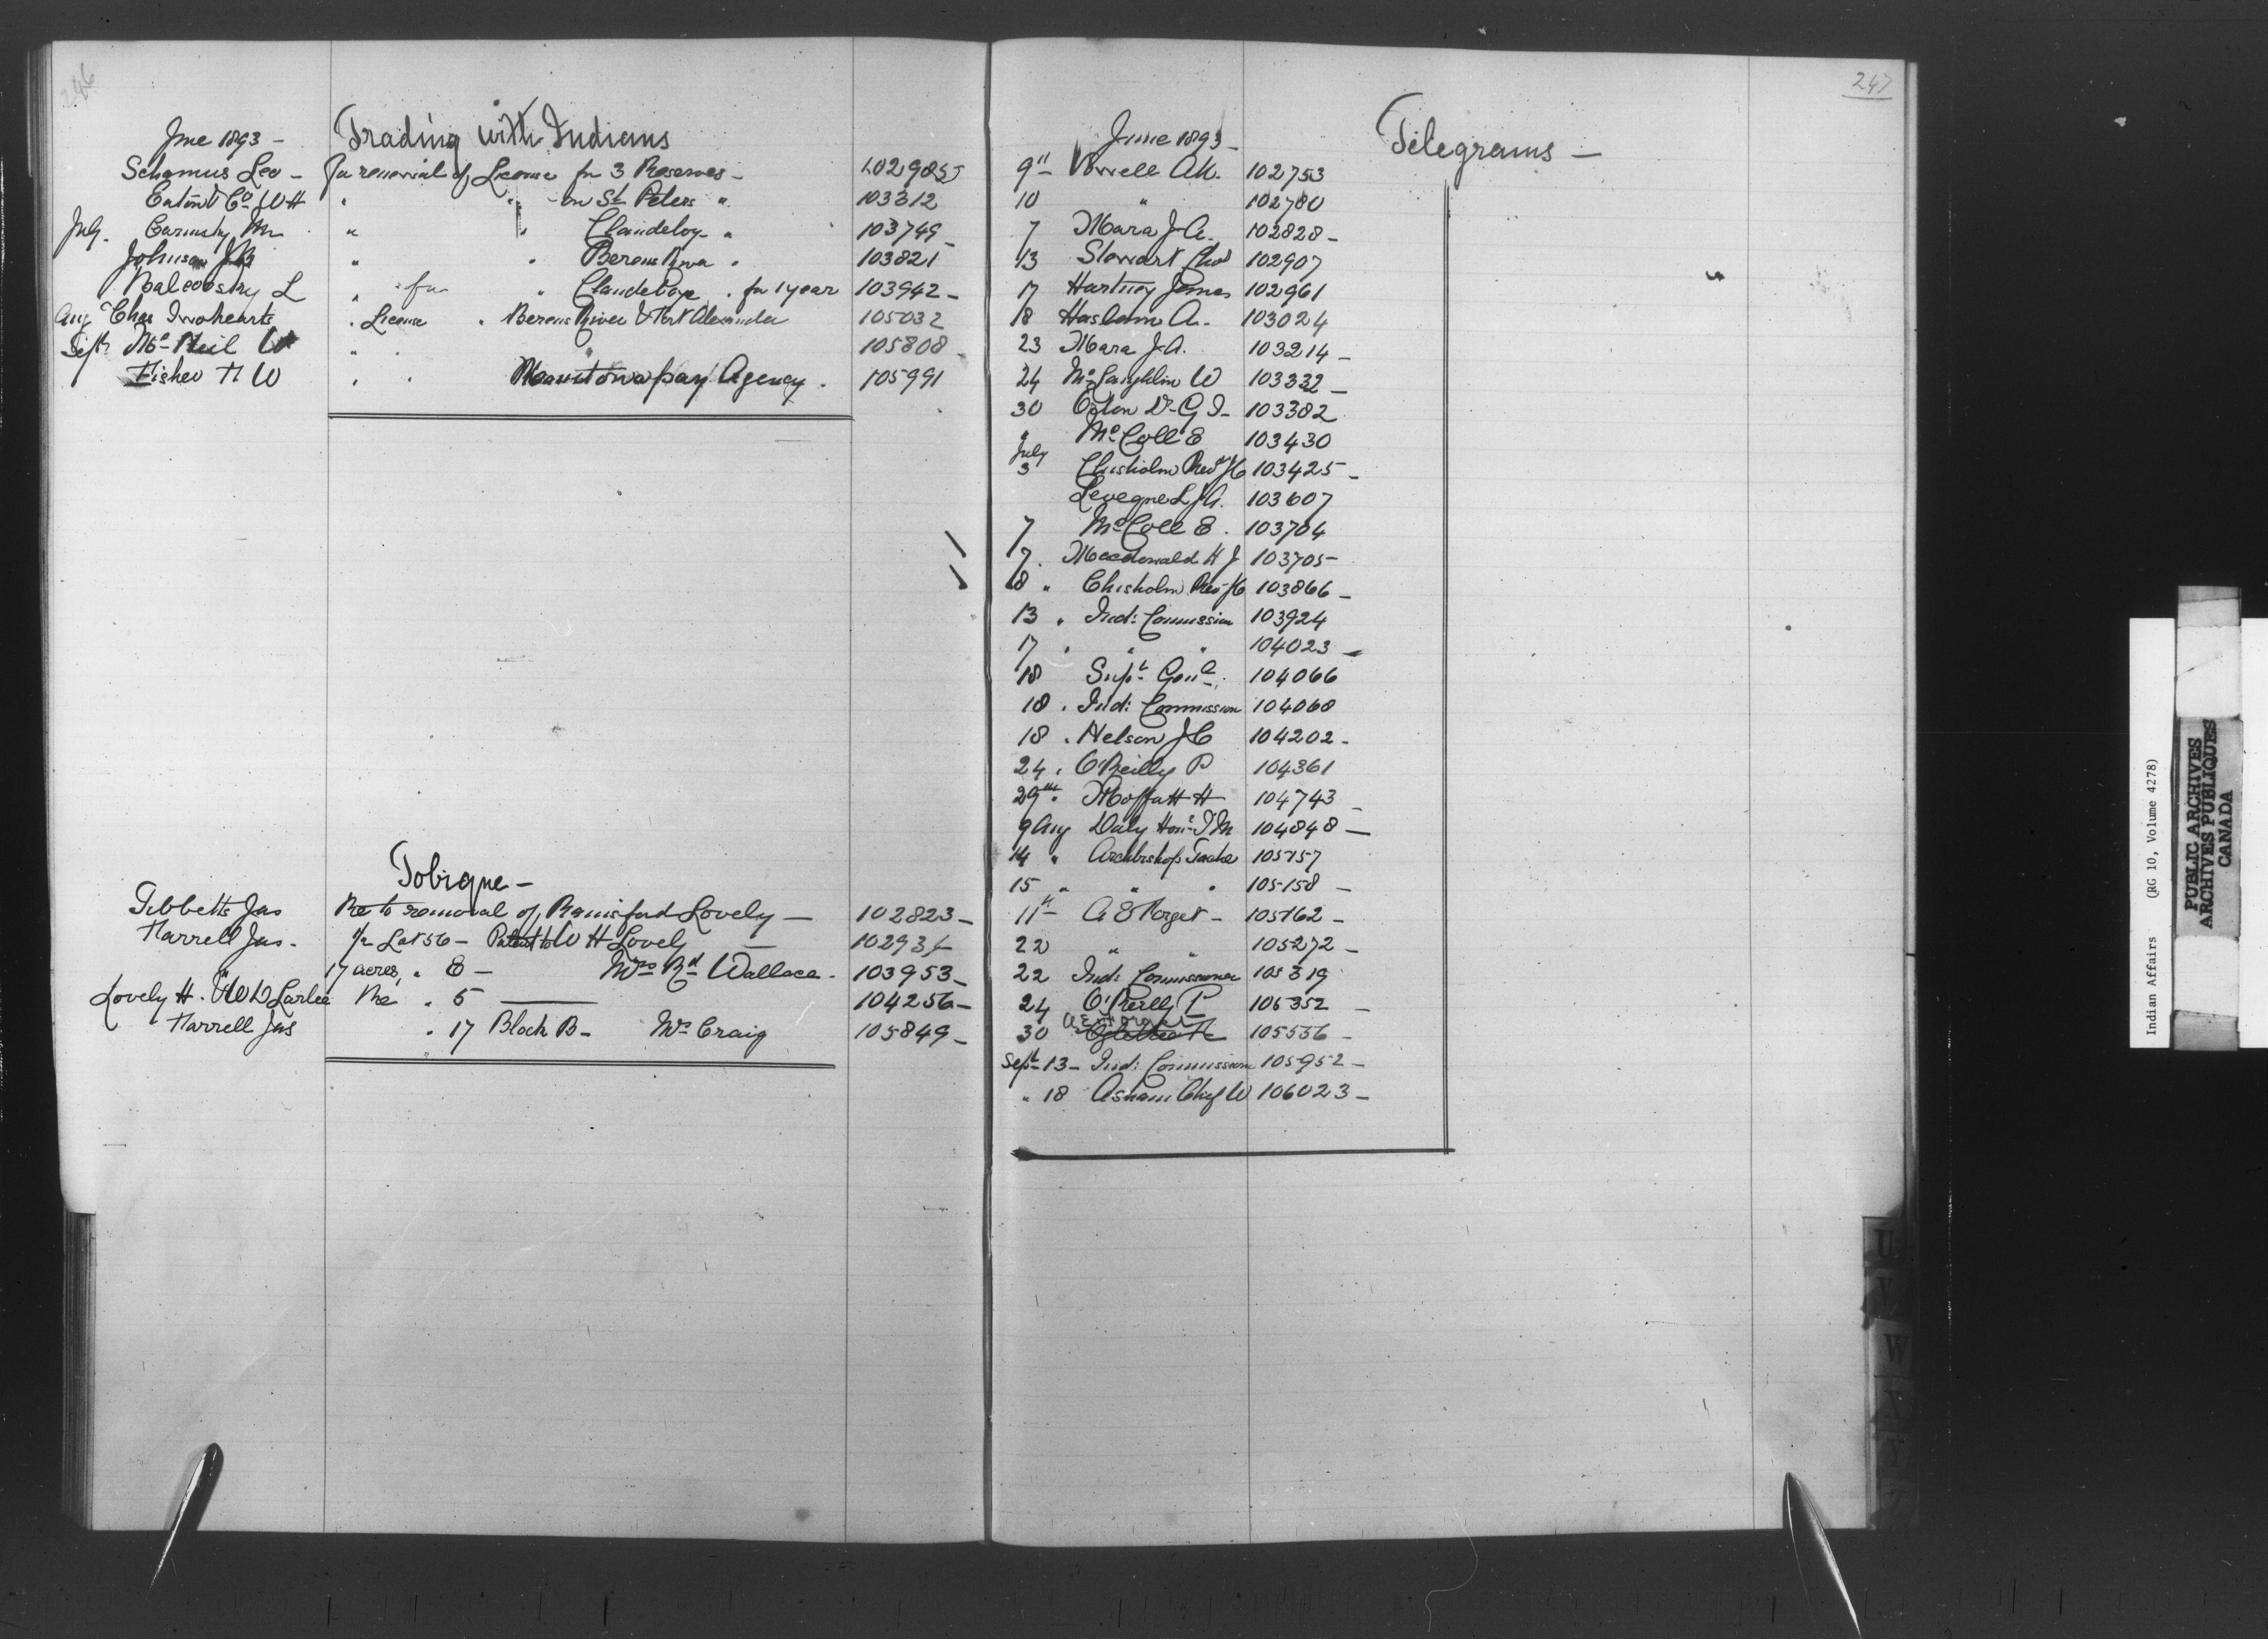 246
June 1893 - Trading with Indians
Schamus Leo - For renewal of License for 3 Reserves - 102985
Eaton & Co W H " " - on St Peters " 103312
July. M " " Clandeboy " 103749 -
Johnson J B " " Berens River " 103821
L " for " Clandeboye " for 1 year 103942 -
Aug Chas Twohearts " License " Berens River & Fort Alexander 105032
Sept Mc Neil W " " " 105808 -
Fisher H W " " Manitowapay Agency . 105991
Tobique -
Tibbetts Jas Re to removal of Lovely - 102823 -
Farrell Jas - 1/2 Lot 56 - Patent to W H Lovely - 10293
" 17 acres " 8 - Mrs Rd Wallace - 103953 -
Lovely H. Re " 5 — 104256 -
Farrell Jas " 17 Block B - Mc Craig 105849 -
247
June 1893 - Telegrams -
9th 102753
10 " 102780
7 Mara J. A. 102828 -
13 Stewart 102907
17 Hartney James 102961
18 Haslam A. 103024
23 Mara J. A. 103214 -
24 McLaughlin W 103332 -
30 Orton Dr G T - 103382
" McColl E 103430
July
3 Chisholm Rev J C 103425 -
L J A. 103607
7 McColl E . 103704
7 . Macdonald H J 103705 -
8 " Chisholm Rev J C 103866 -
13 " Ind: Commission 103924
17 " " " 104023 -
18 Supt Genl. 104066
18 . Ind: Commission 104068
18 . Nelson J C 104202 -
24 . O'Reilly P 104361
29th . Moffatt H 104743 -
9 Aug Daly Honl T M 104848 -
14 " Archbishop Tache 105157
15 " " " 105158 -
11th A E Forget - 105162 -
22 " " 105272 -
22 Ind: Commissioner 105319
24 O'Reilly P 105352 -
30 A E Forget 105536 -
Sept - 13 - Ind: Commission 105952 -
" 18 Asham Chief W 106023 -
U
V
W
X
Y
Z
Indian Affairs (RG 10, Volume 4278)
PUBLIC ARCHIVES
ARCHIVES PUBLIQUES
CANADA